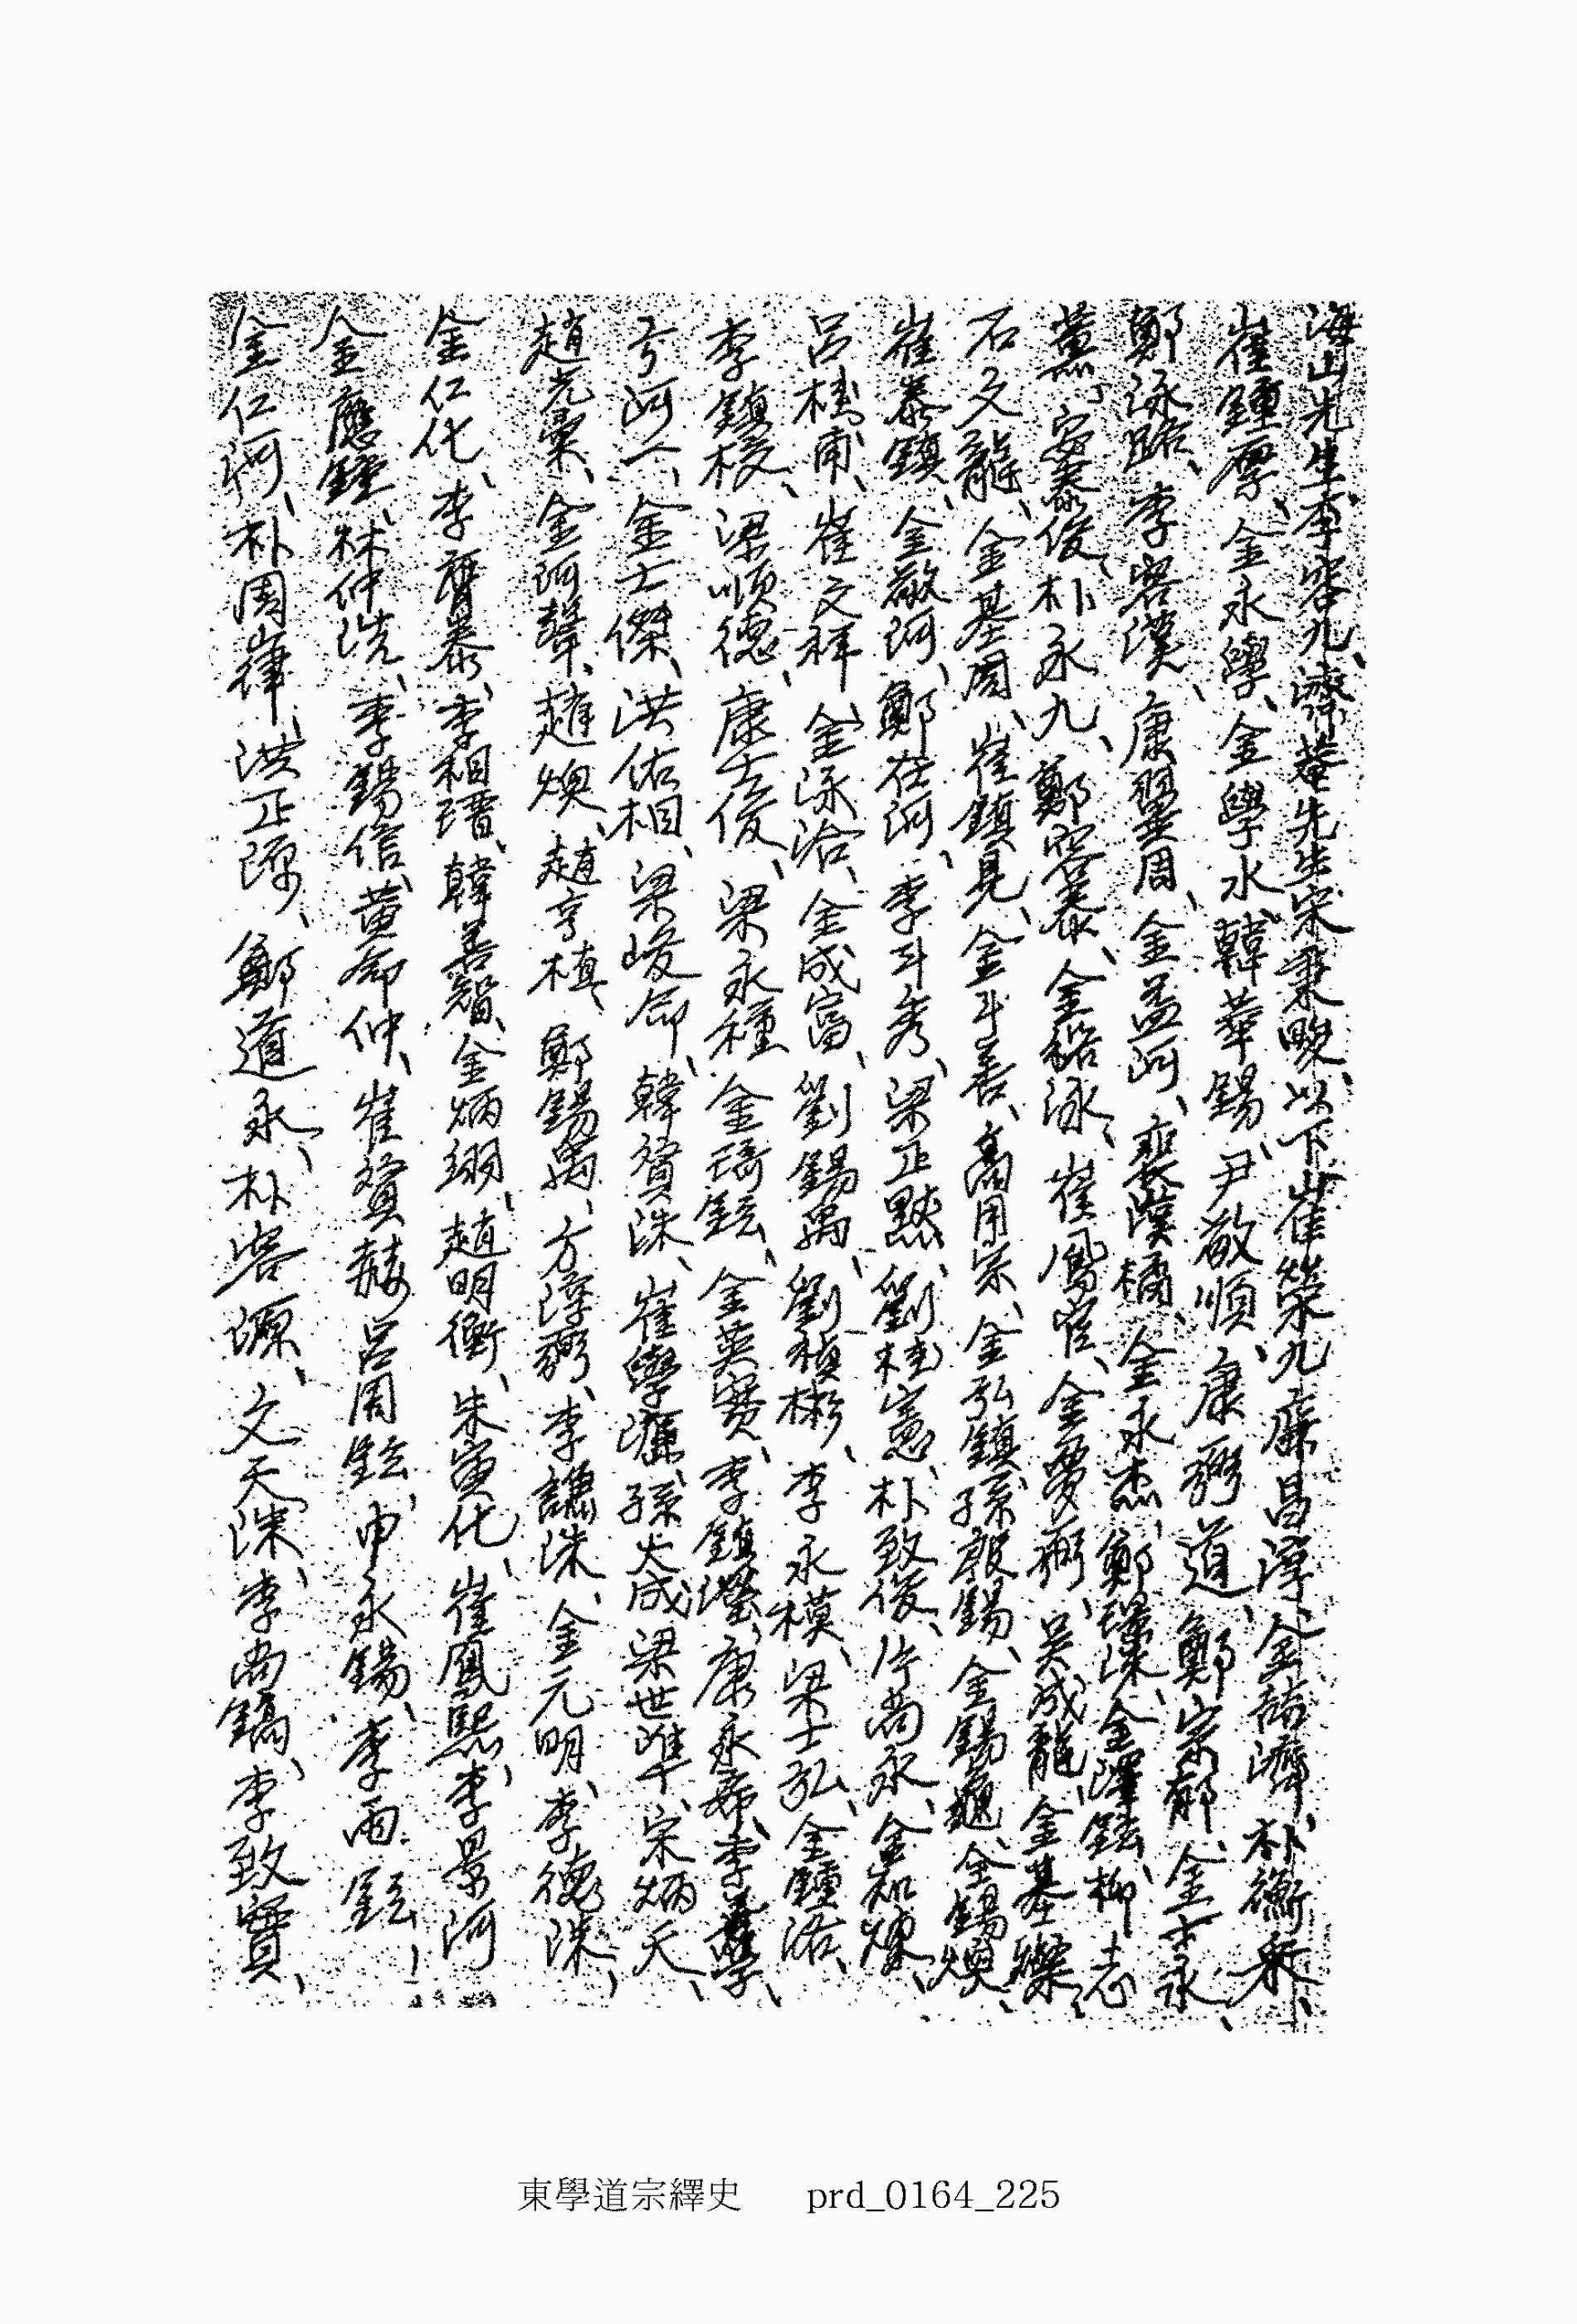 海山先生李容九、濟菴先生宋秉畯、以下崔榮九、康昌淳、金喆濟、朴衡采、
崔鍾厚、金永學、金學水、韓華錫、尹敬順、康弼道、鄭宗郁、金士永、
鄭泳路、李容漢、康翼周、金益河、裵漢橘、金永杰、鄭璟洙、金澤鉉、柳志
薰、安泰俊、朴永九、鄭容泰、金裕泳、崔鳳官、金夢弼、吳成龍、金基燦、
石文龍、金基周、崔鎭見、金斗善、高用宗、金弘鎭、孫殷錫、金錫龜、金錫煥、
崔泰鎭、金敬河、鄭在河、李斗秀、梁正黙、劉桂憲、朴致俊、片尙永、金知煉、
呂桂甫、崔文祥、金泳洽、金成富、劉錫禹、劉禎彬、李永模、梁士弘、金鍾洛、
李鎭校、梁順德、康士俊、梁永種、金琦鉉、金英寶、李鎭瀅、康永希、李義學、
河一、金士傑、洪佑相、梁峻命、韓贊洙、崔學濂、孫大成、梁世準、宋炳天、
趙光彙、金河聲、趙煥、趙亨植、鄭錫禹、方淳弼、李謙洙、金元明、李德洙、
金仁化、李膺泰、李相瑨、韓善智、金炳翊、趙明衡、朱寅化、崔鳳熙、李景河
金應鍾、林仲浩、李錫信、黃命仲、崔贊赫、呂周鉉、申永錫、李雨鉉、
金仁河、朴周嵂、洪正源、鄭道永、朴容源、文天洙、李尙鎬、李致寶、
東學道宗繹史 prd_0164_225